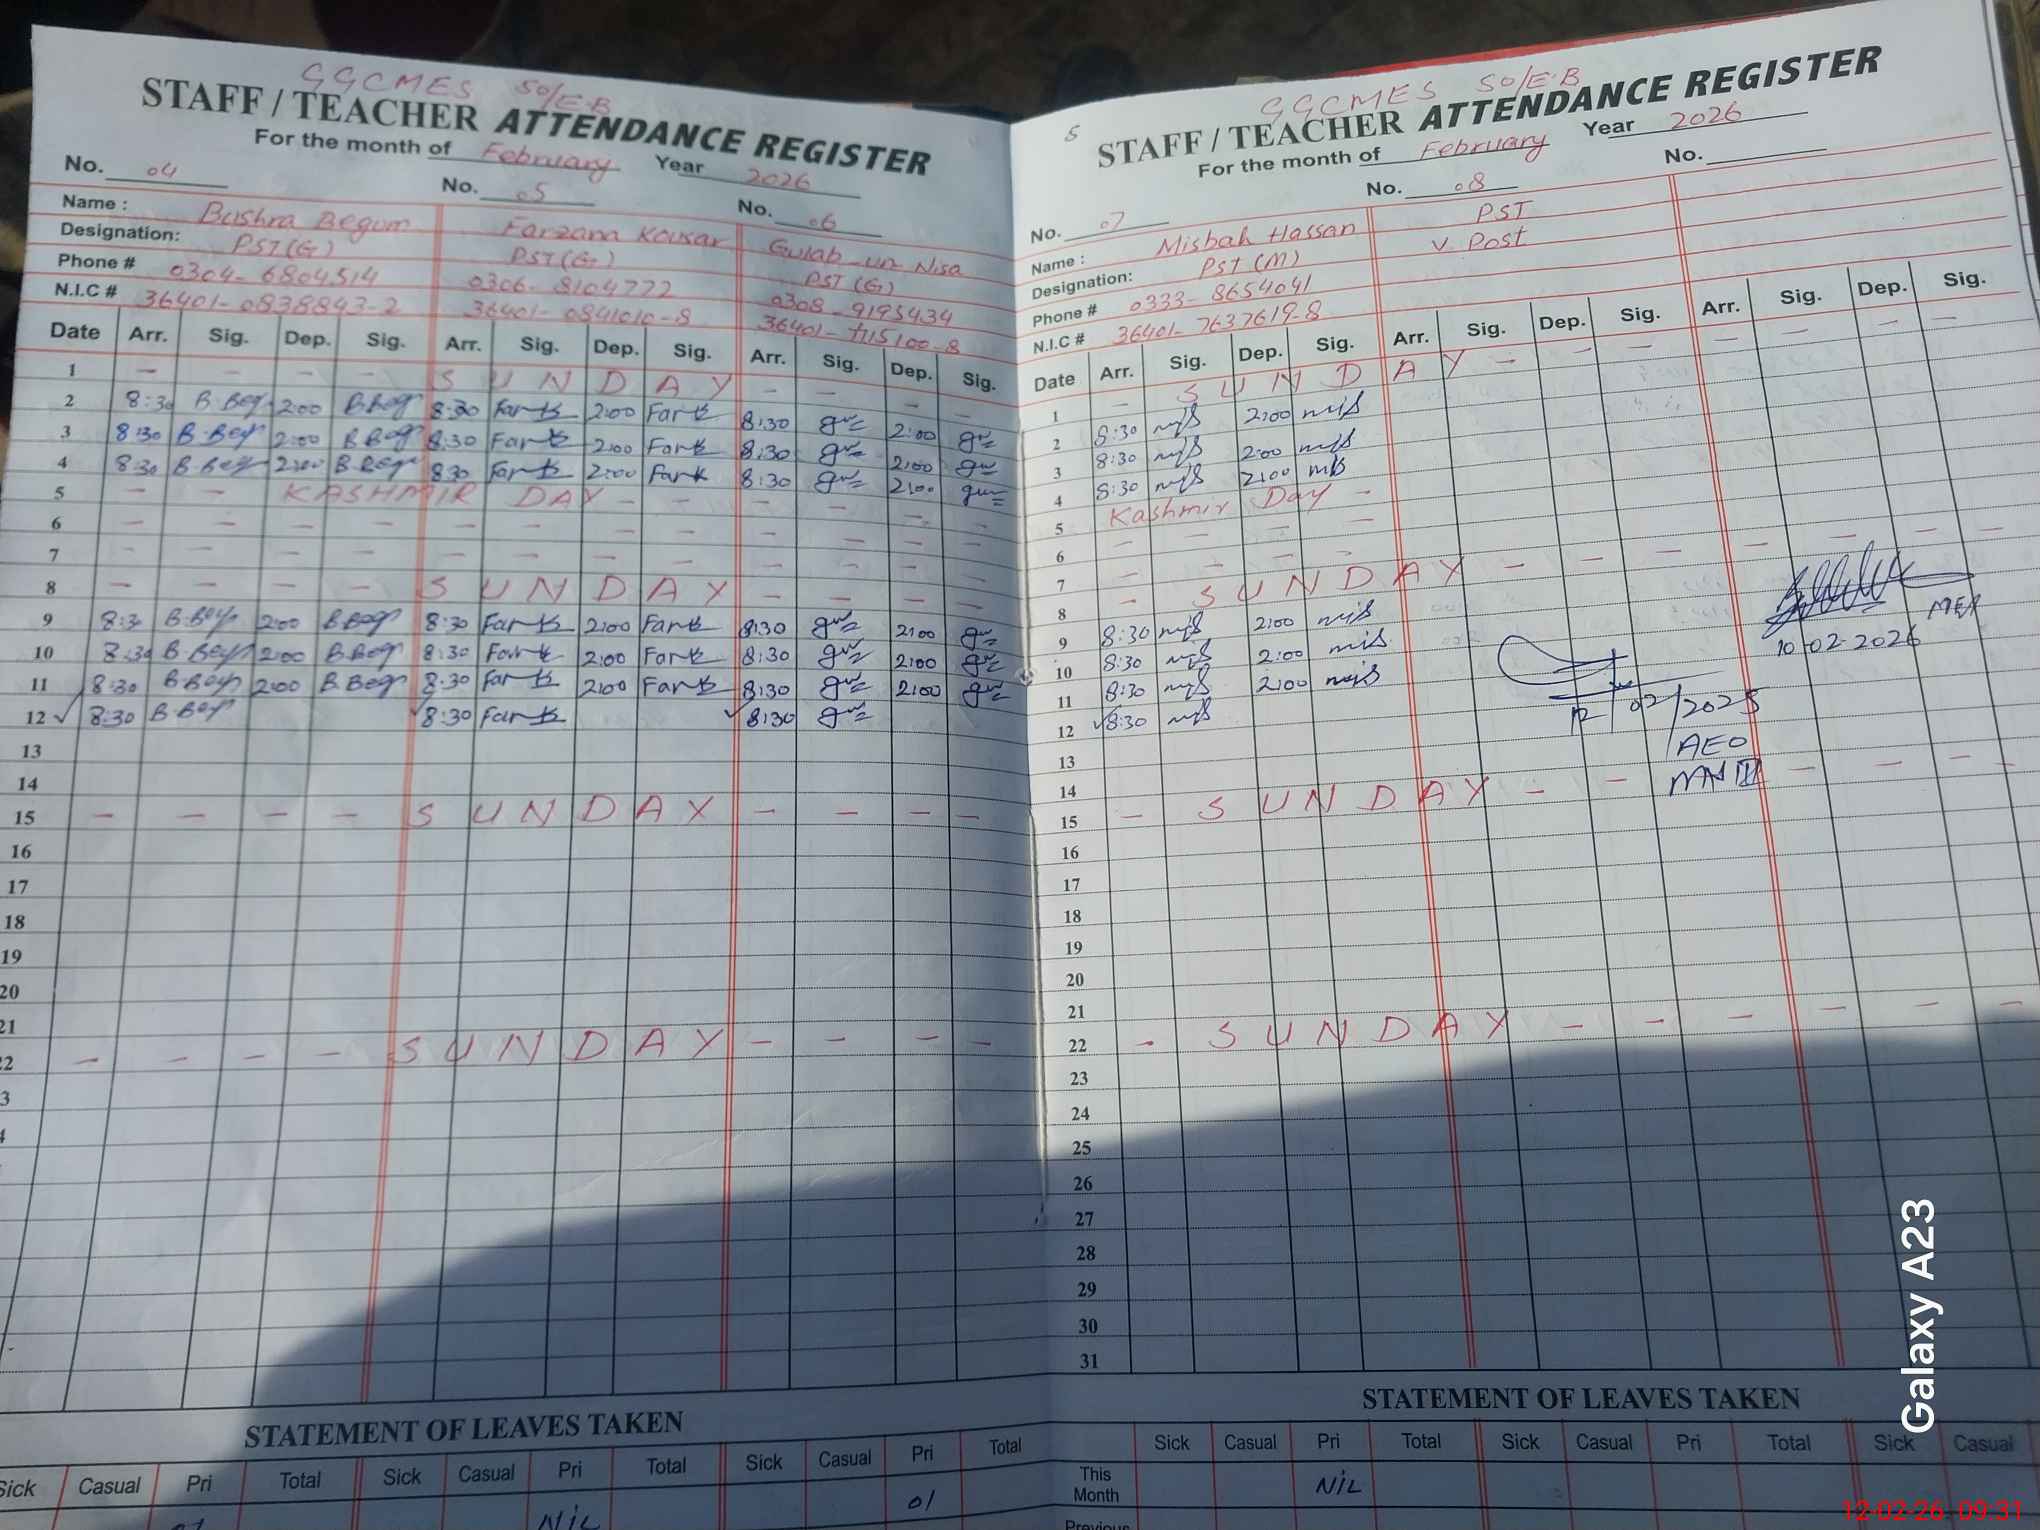 GGCMES 50/E.B
STAFF / TEACHER ATTENDANCE REGISTER
For the month of February Year 2026
No. 04 No. 05 No. 06
Name : Bushra Begum Farzana Kousar Gulab un Nisa
Designation: PST(G) PST(G) PST(G)
Phone # 0304-6804514 0306-8104772 0308-9195434
N.I.C # 36401-0838843-2 36401-0841010-8
Date Arr. Sig. Dep. Sig. Arr. Sig. Dep. Sig. Arr. Sig. Dep. Sig.
1 SUNDAY
2 8:30 B.Beg 2:00 B.Beg 8:30 Fark 2:00 Fark 8:30 2:00
3 8:30 B.Beg 2:00 B.Beg 8:30 Fark 2:00 Fark 8:30 2:00
4 8:30 B.Beg 2:00 B.Beg 8:30 Fark 2:00 Fark 8:30 2:00
5 KASHMIR DAY
6
7
8 SUNDAY
9 8:3 B.Beg 2:00 B.Beg 8:30 Fark 2:00 Fark 8:30 2:00
10 8:30 B.Beg 2:00 B.Beg 8:30 Fark 2:00 Fark 8:30 2:00
11 8:30 B.Beg 2:00 B.Beg 8:30 Fark 2:00 Fark 8:30 2:00
12 8:30 B.Beg 8:30 Fark 8:30
13
14
15 SUNDAY
16
17
18
19
20
21
22 SUNDAY
STATEMENT OF LEAVES TAKEN
Sick Casual Pri Total Sick Casual Pri Total Sick Casual Pri Total
NIL 01
5
GGCMES 50/E.B
STAFF / TEACHER ATTENDANCE REGISTER
For the month of February Year 2026
No. 07 No. 08 No.
Name : Misbah Hassan PST
Designation: PST (M) V. Post
Phone # 0333-8654041
N.I.C # 36401-7637619-8
Date Arr. Sig. Dep. Sig. Arr. Sig. Dep. Sig. Arr. Sig. Dep. Sig.
1 SUNDAY
2 8:30 mis 2:00 mis
3 8:30 mis 2:00 mis
4 8:30 mis 2:00 mis
5 Kashmir Day
6
7
8 SUNDAY
9 8:30 mis 2:00 mis
10 8:30 mis 2:00 mis
11 8:30 mis 2:00 mis
12 8:30 mis
MEA
10-02-2026
12/02/2025
AEO
13
14
15 SUNDAY
16
17
18
19
20
21
22 SUNDAY
23
24
25
26
27
28
29
30
31
STATEMENT OF LEAVES TAKEN
Sick Casual Pri Total Sick Casual Pri Total Sick Casual
This Month NIL
Previous
Galaxy A23
12-02-26 09:31